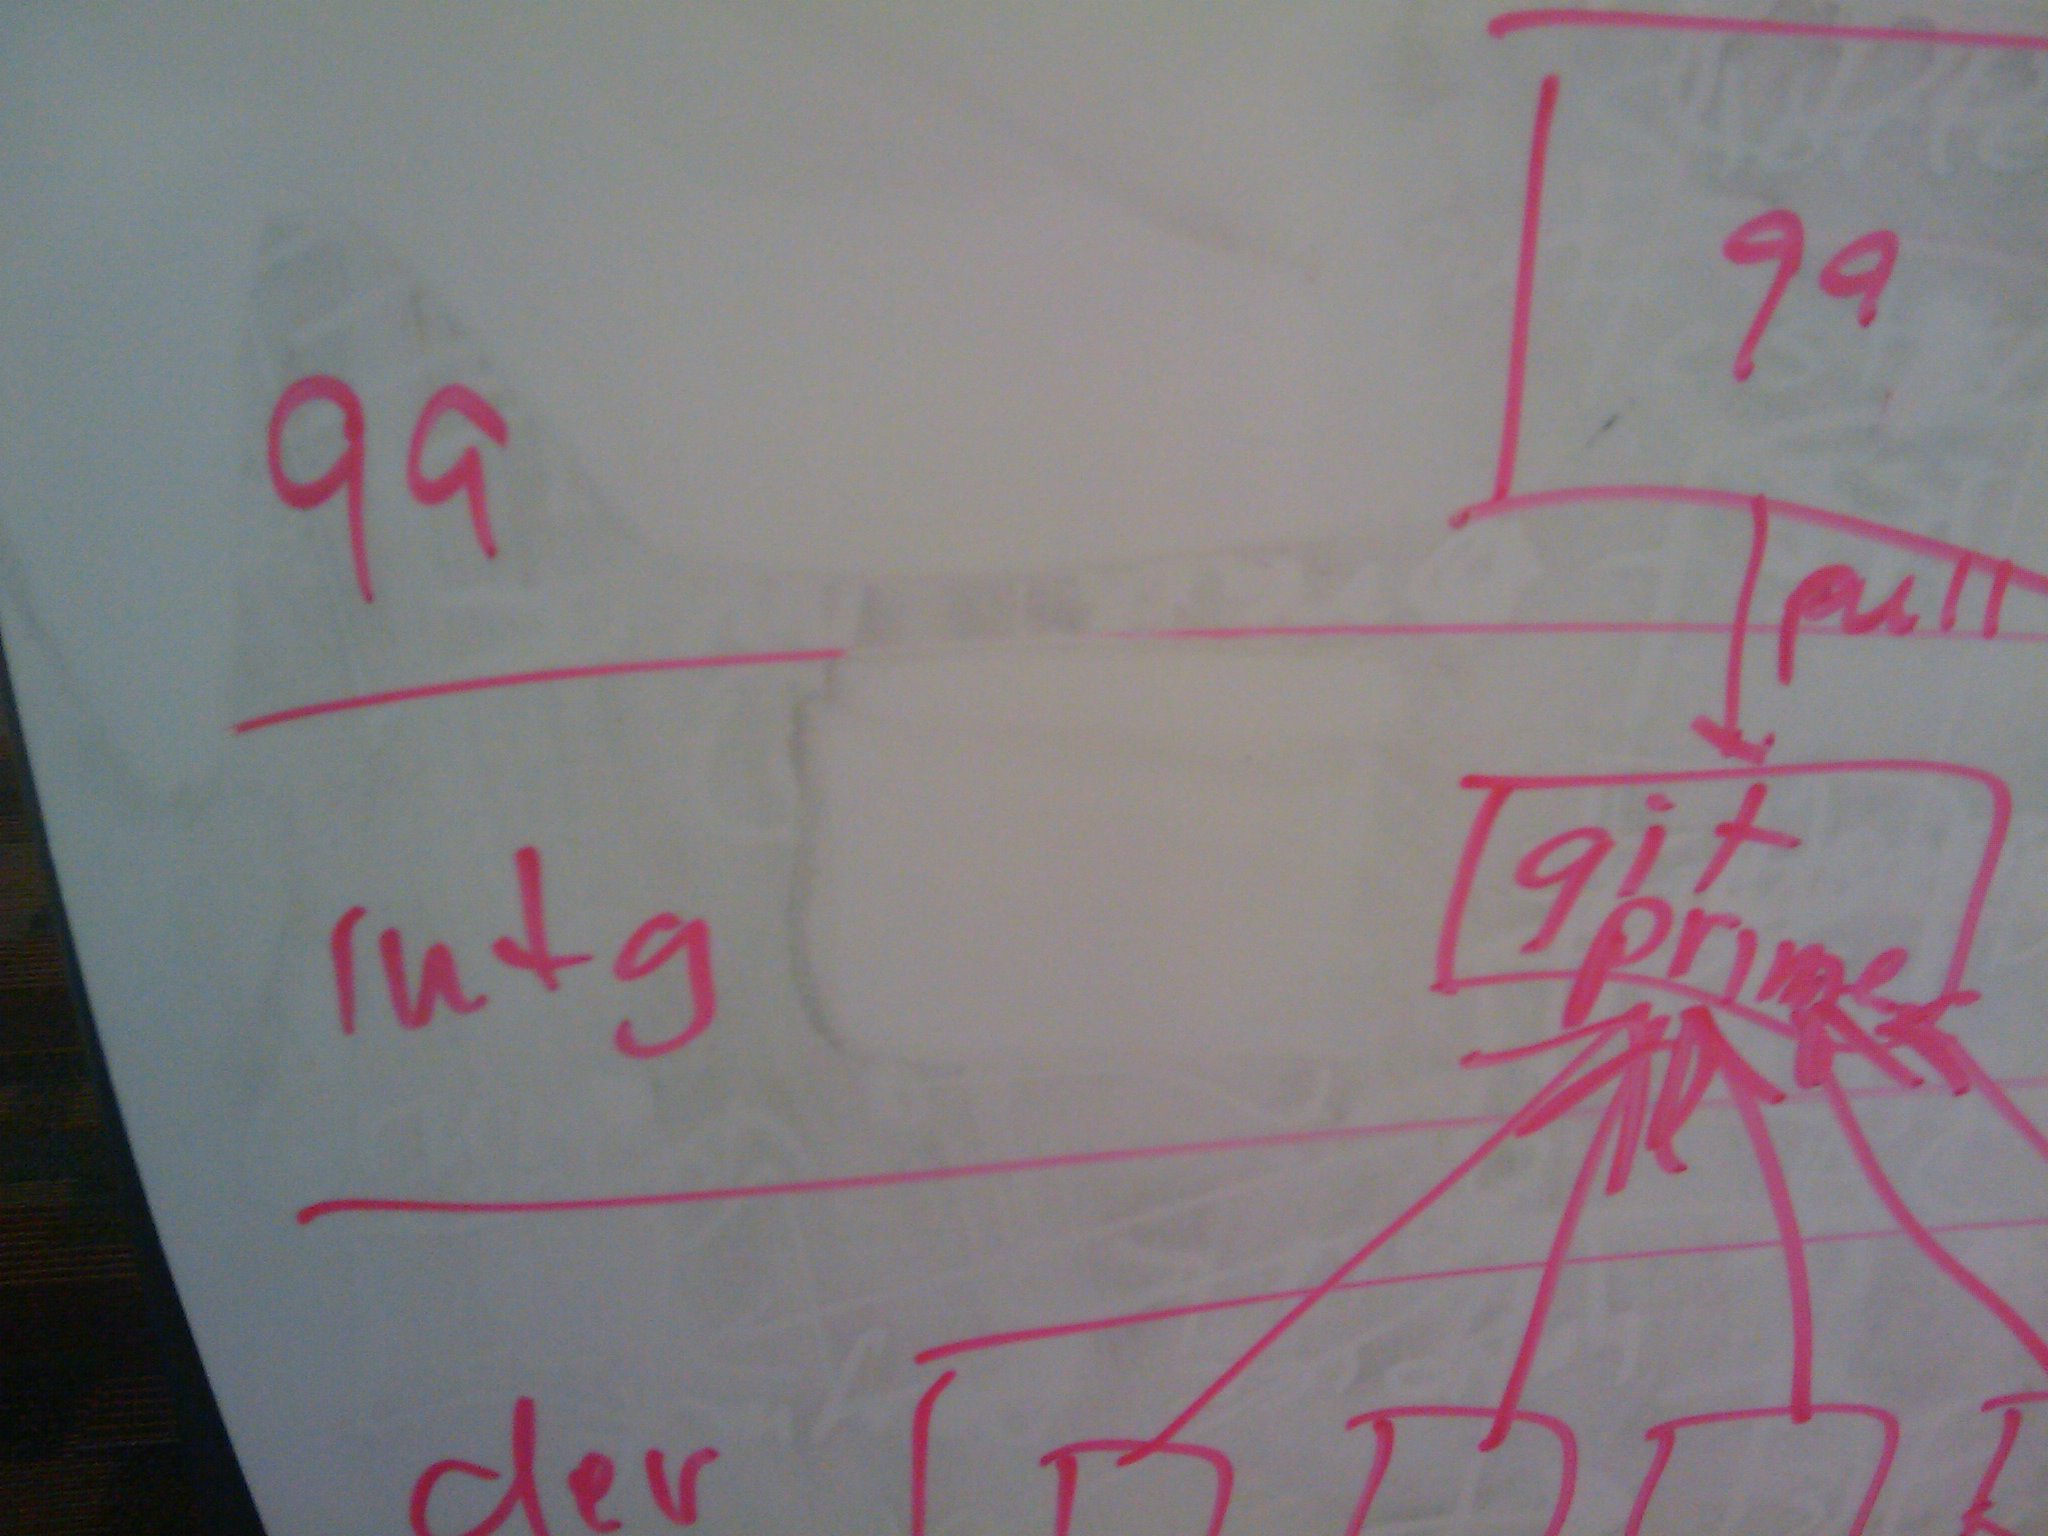 qa
qa
pull
intg
git
prime
dev